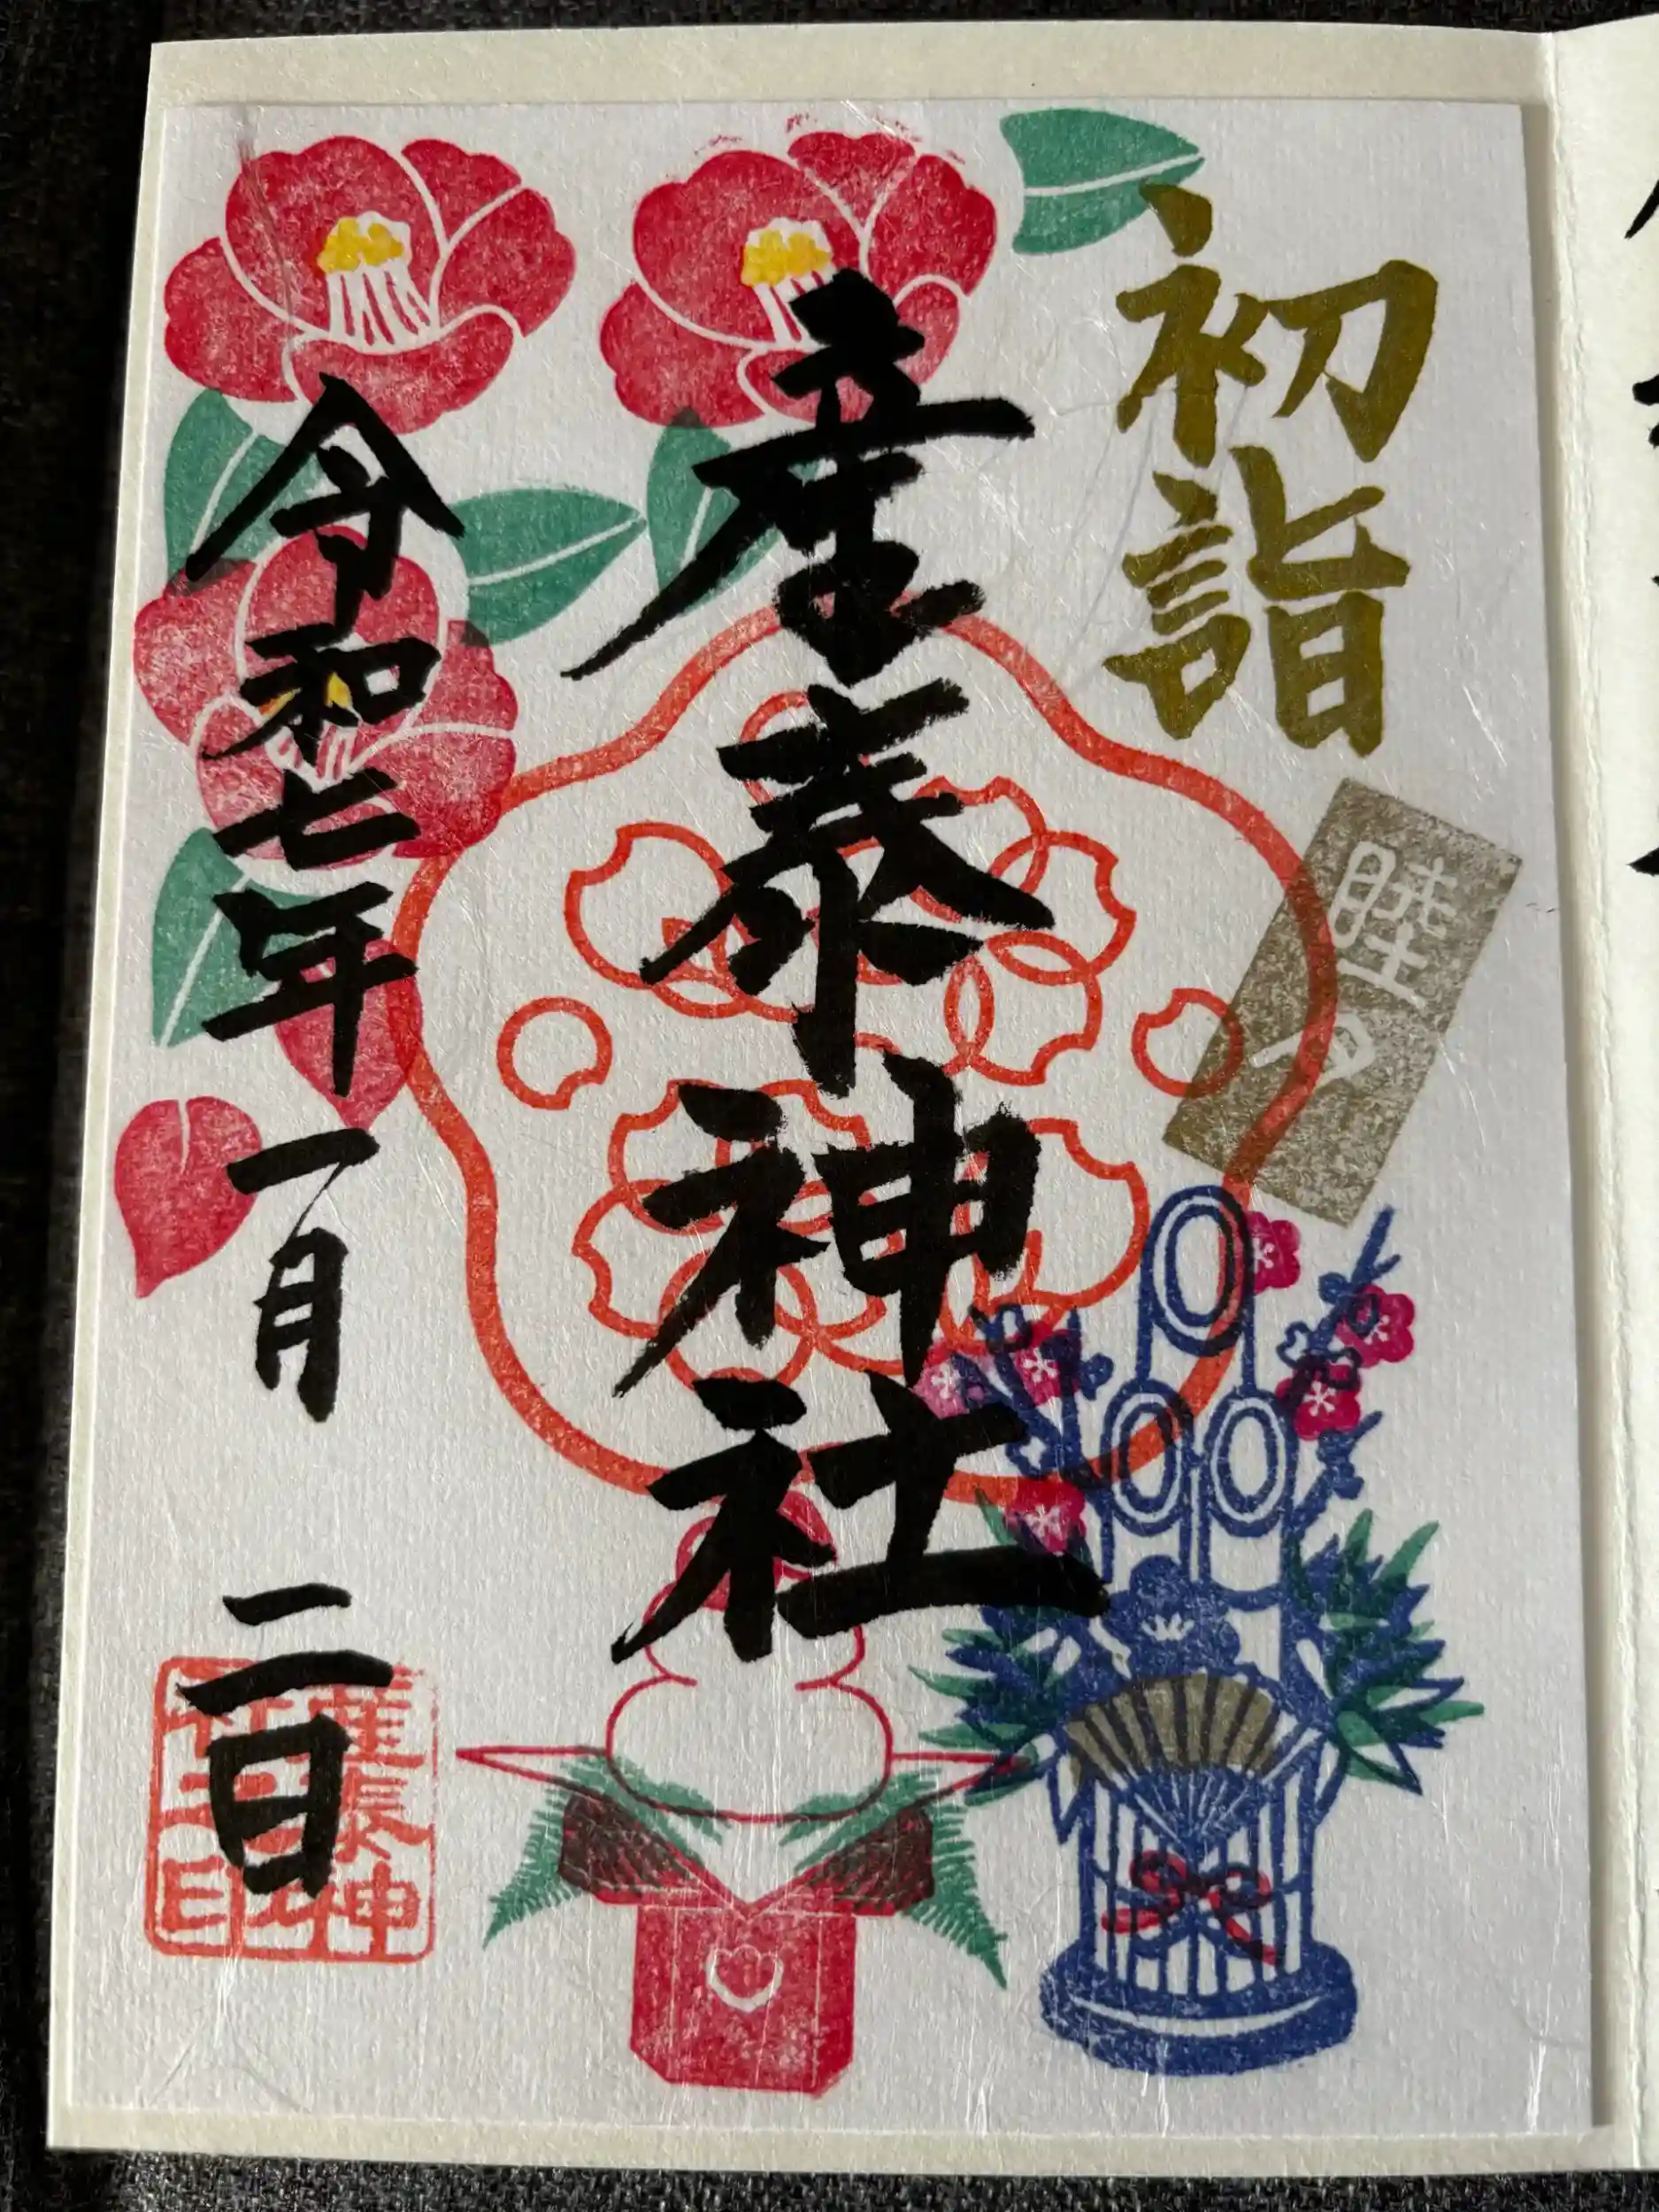 初詣
睦月
産泰神社
令和七年一月二日
産泰神
社之印